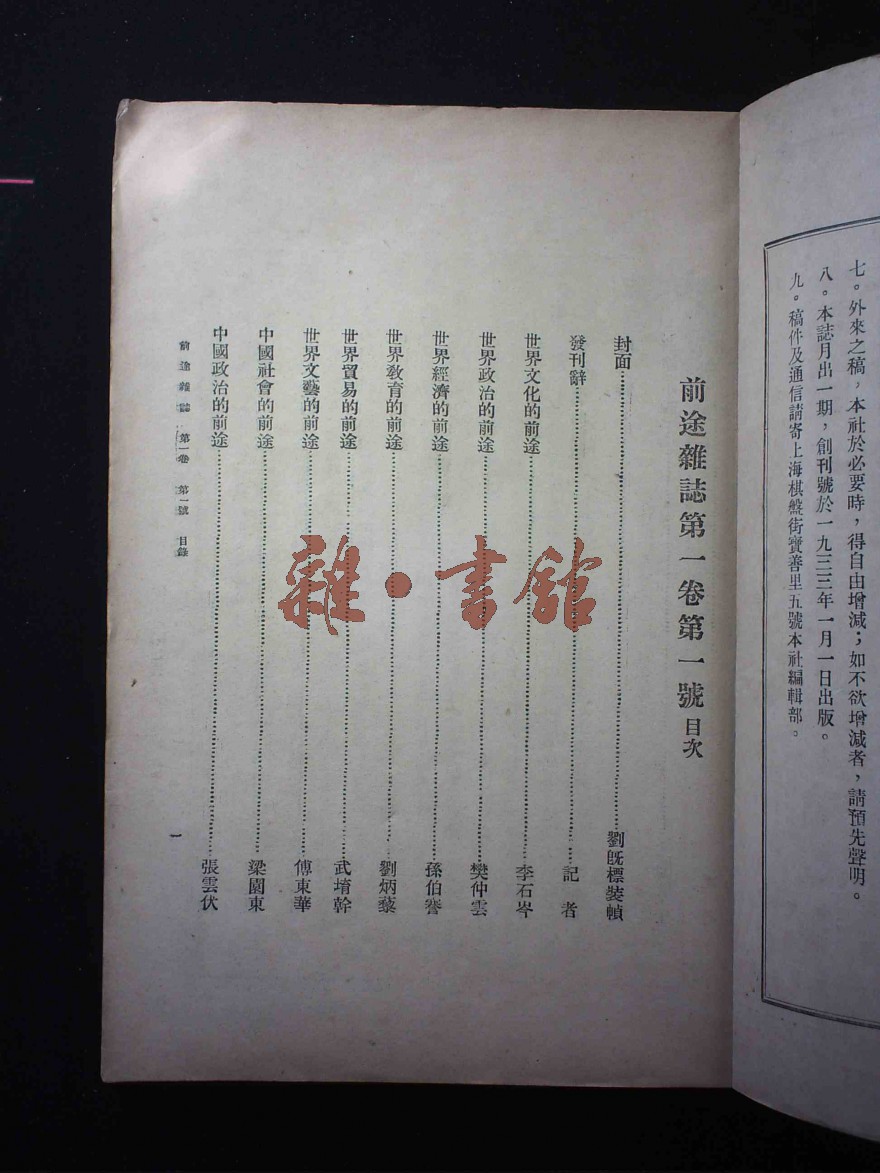 七。外來之稿，本社於必要時，得自由增減；如不欲增減者，請預先聲明。
八。本誌月出一期，創刊號於一九三三年一月一日出版。
九。稿件及通信請寄上海棋盤街寶善里五號本社編輯部。
前途雜誌第一卷第一號目次
封面……劉既標裝幀
發刊辭……記者
世界文化的前途……李石岑
世界政治的前途……樊仲雲
世界經濟的前途……孫伯謇
世界教育的前途……劉炳藜
世界貿易的前途……武堉幹
世界文藝的前途……傅東華
中國社會的前途……梁園東
中國政治的前途……張雲伏
前途雜誌 第一卷 第一號 目錄
一
雜·書館